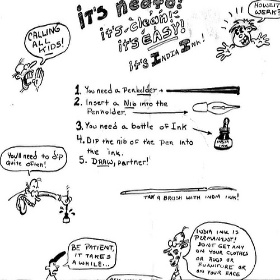 it's neato!
it's clean!
it's EASY!
it's INDIA INK!
CALLING
ALL
KIDS!
HOWZIT
WERK?
1. You need a Penholder
2. Insert a Nib into the
Penholder
3. You need a bottle of Ink
4. Dip the nib of the Pen into
the ink.
5. DRAW, partner!
You'll need to dip
quite often!
TRY A BRUSH WITH INDIA INK!
BE PATIENT,
IT TAKES
A WHILE...
INDIA INK IS
PERMANENT!
DON'T GET ANY
ON YOUR CLOTHES
OR RUGS OR
FURNITURE OR
ON YOUR FACE